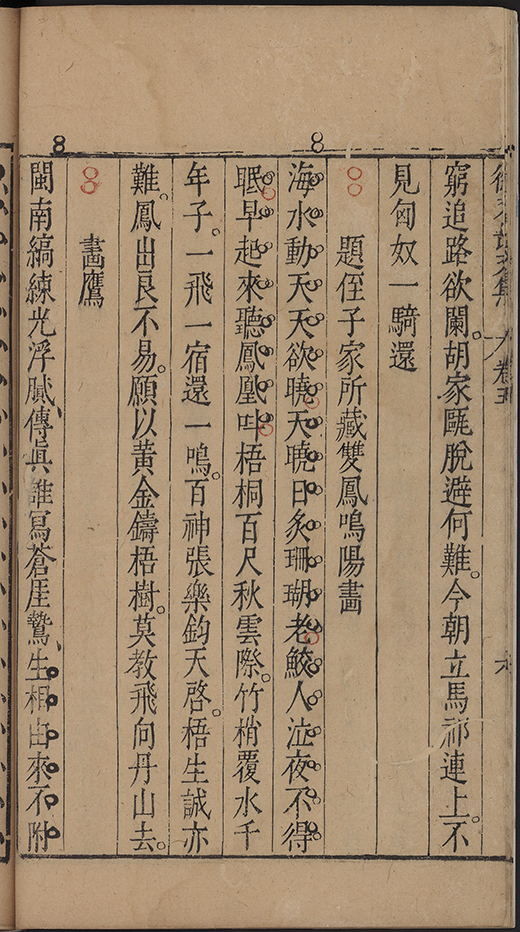 徐 文 集 卷五
窮追路欲闌。胡家甌脫避何難。今朝立馬祁連上。不
見匈奴一騎還
題侄子家所藏雙鳳鳴陽畫
海水動天天欲曉天曉日炙珊瑚老鮫人泣夜不得
眠早起來聽鳳凰叫梧桐百尺秋雲際。竹梢覆水千
年子。一飛一宿還一鳴。百神張樂鈞天啓。梧生誠亦
難。鳳出良不易。願以黃金鑄梧樹。莫教飛向丹山去。
畫鷹
閩南縞練光浮膩、傳眞誰寫蒼崖鷙、生相由來不附